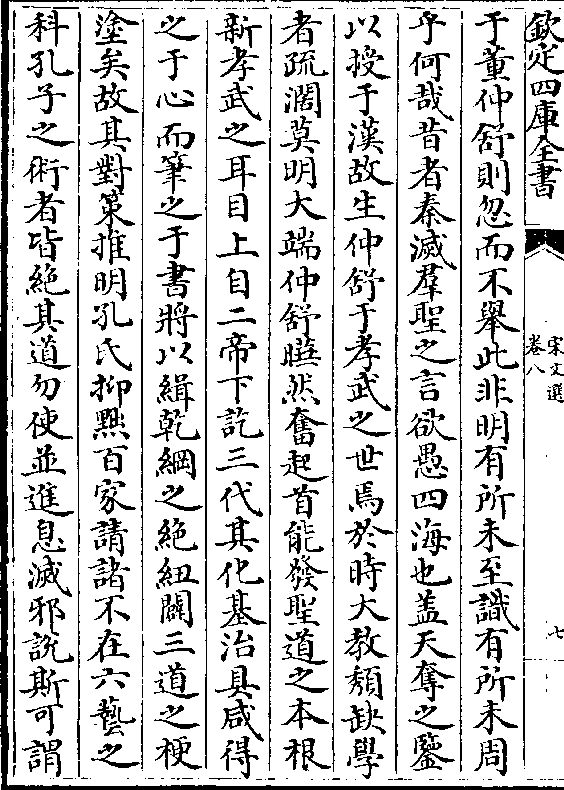 欽定四庫全書
宋文選
卷八
七
于董仲舒則忽而不舉此非明有所未至識有所未周
乎何哉昔者秦滅羣聖之言欲愚四海也盖天奪之鑒
以授于漢故生仲舒于孝武之世焉於時大教頽缺學
者疏濶莫明大端仲舒曣然奮起首能發聖道之本根
新孝武之耳目上自二帝下訖三代其化基治具咸得
之于心而筆之于書將以緝乾綱之絶紐闢三道之梗
塗矣故其對策推明孔氏抑黜百家請諸不在六藝之
科孔子之術者皆絶其道勿使並進息滅邪説斯可謂